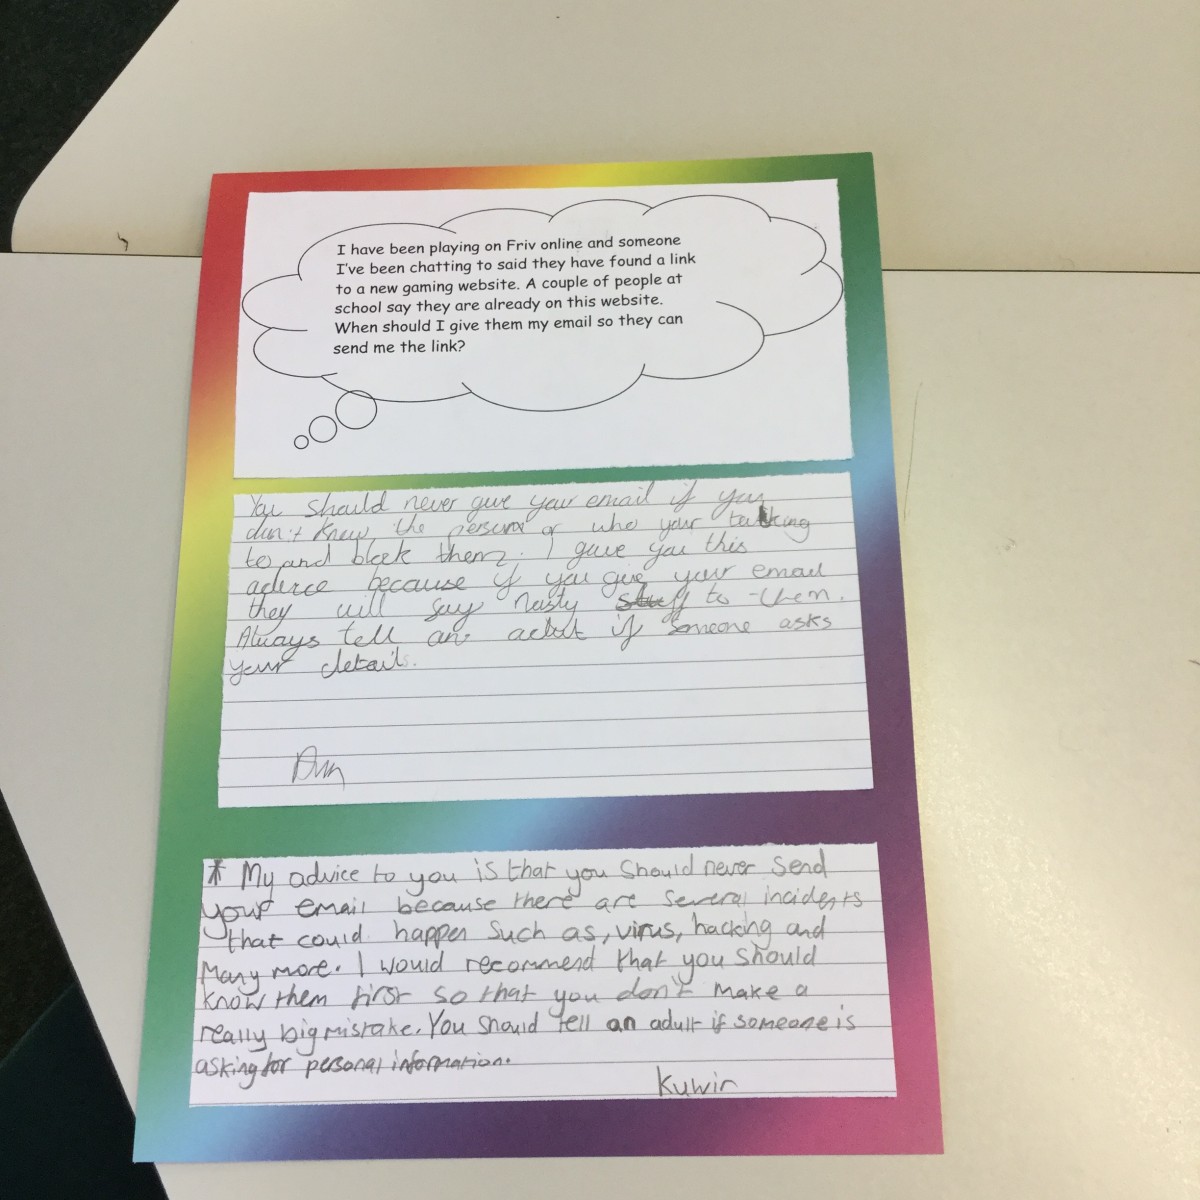 I have been playing on Friv online and someone
I've been chatting to said they have found a link
to a new gaming website. A couple of people at
school say they are already on this website.
When should I give them my email so they can
send me the link?
You should never give your email if you
don't know the person or who your talking
to and block them. I gave you this
advice because if you give your email
they will say nasty stuff to them.
Always tell an adult if Someone asks
your details.
* My advice to you is that you should never send
your email because there are several incidents
that could happen such as, virus, hacking and
Many more. I would recommend that you should
know them first so that you don't make a
really big mistake. You should tell an adult if someone is
asking for personal information.
Kuwin